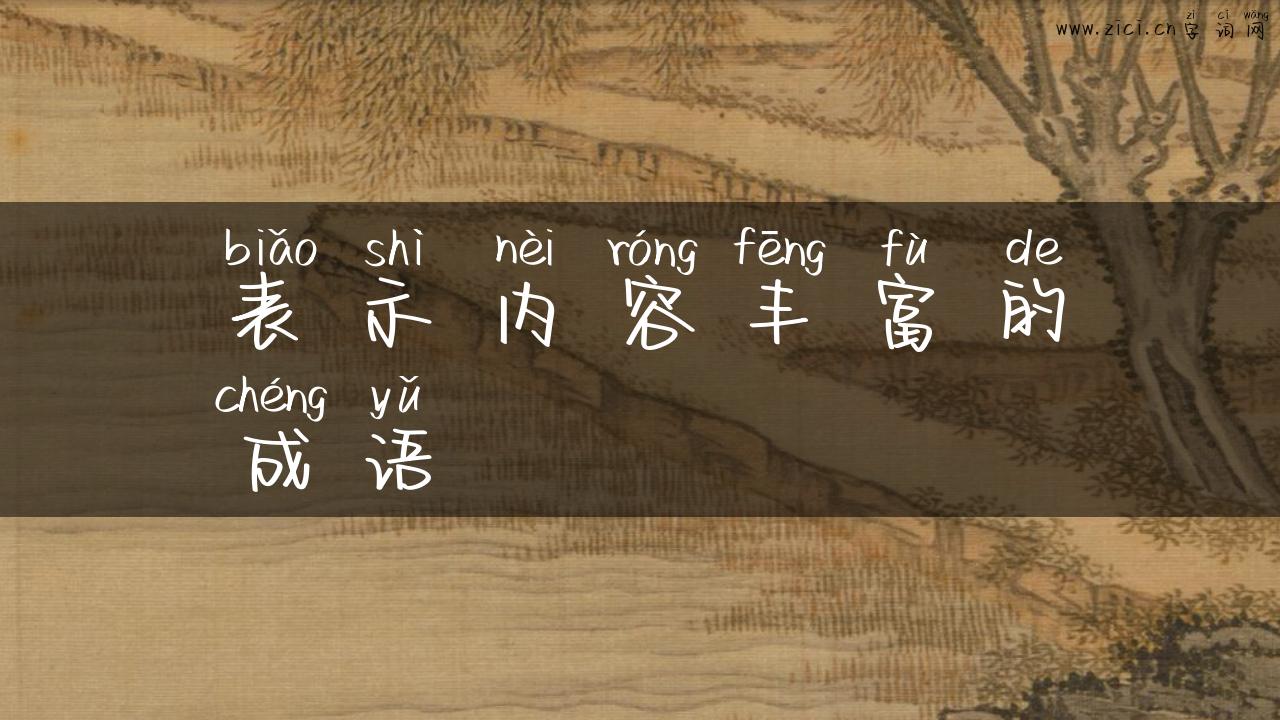 zì cí wǎng
www.zici.cn字词网
biǎo shì nèi róng fēng fù de
表示内容丰富的
chéng yǔ
成语